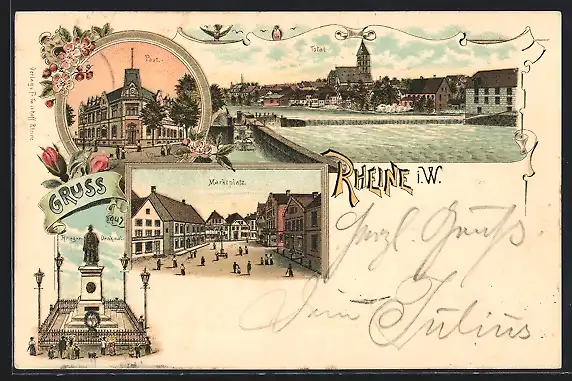 Post.
Total
Marktplatz.
GRUSS
aus
RHEINE i.W.
Krieger Denkmal.
Herzl. Gruß
Dein Julius